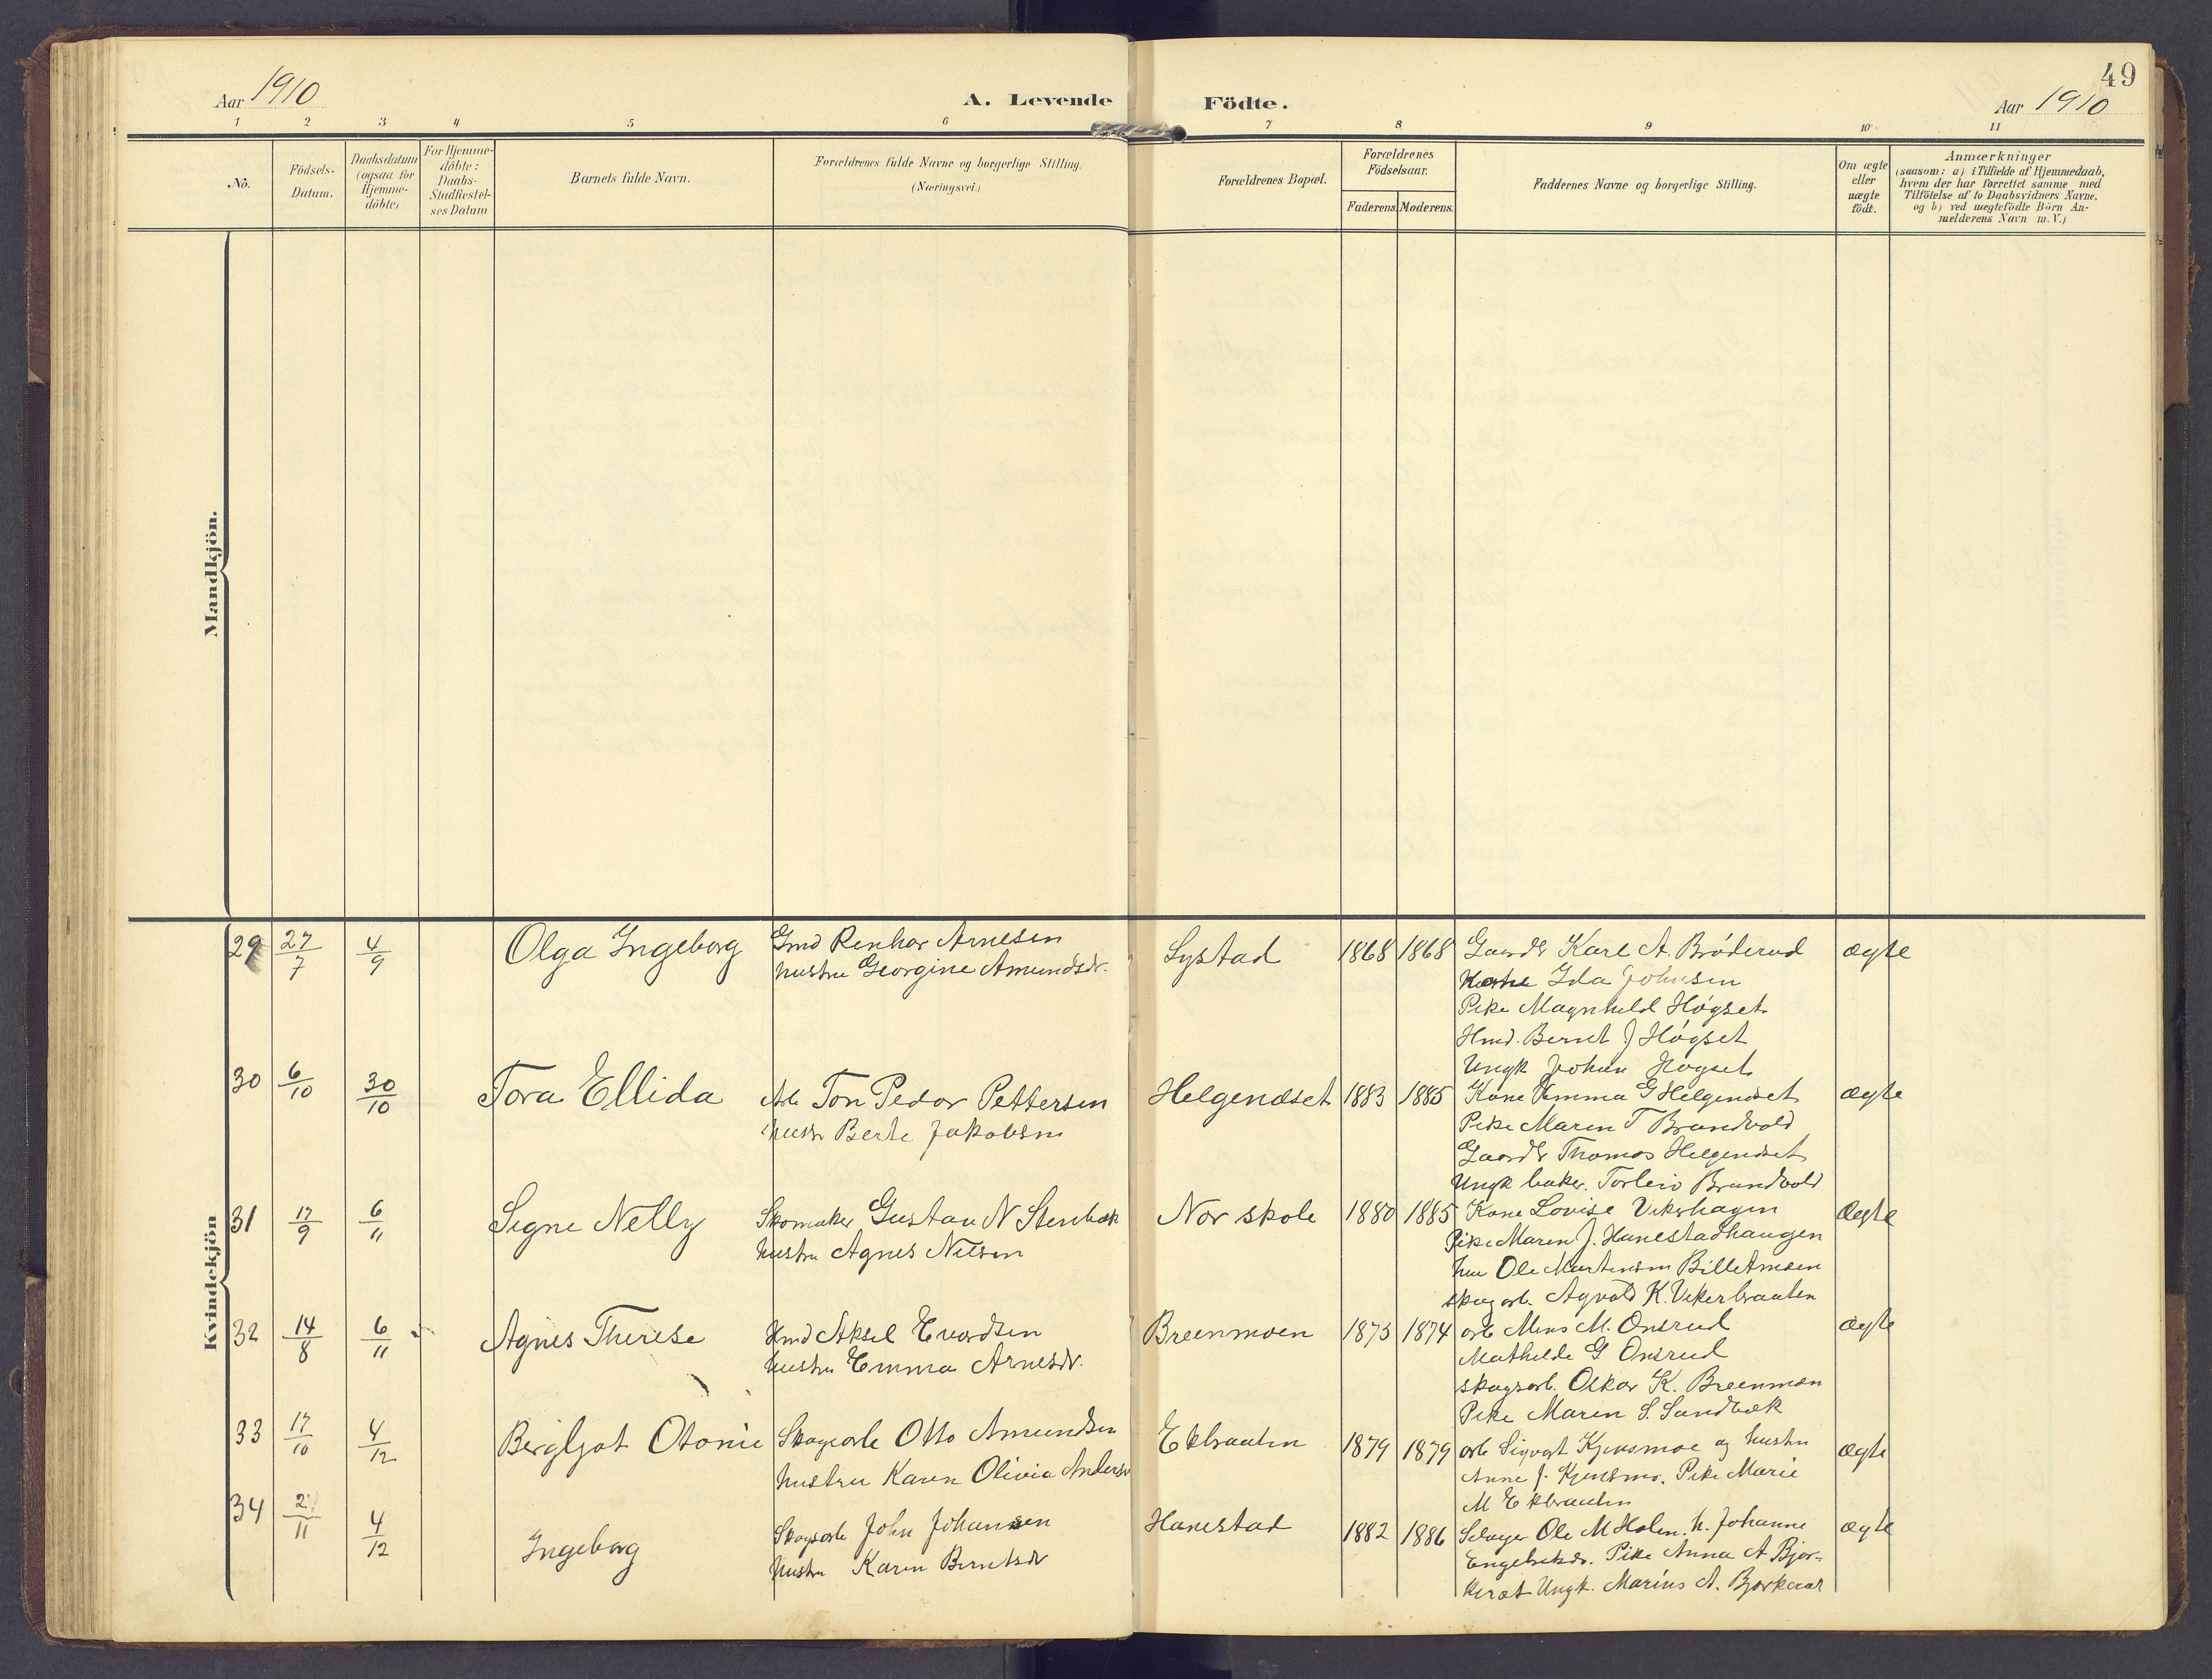 49
Aar 1910
A. Levende Födte.
Aar 1910
1 2 3 4 5 6 7 8 9 10 11
No.
Födsels-
Datum.
Daabsdatum
(ogsaa for
Hjemme-
döbte)
For Hjemme-
döbte:
Daabs-
Stadfæstel-
ses Datum
Barnets fulde Navn.
Forældrenes fulde Navne og borgerlige Stilling.
(Næringsvei.)
Forældrenes Bopæl.
Forældrenes
Födselsaar.
Faderens. Moderens.
Faddernes Navne og borgerlige Stilling.
Om ægte
eller
uægte
födt.
Anmærkninger
(saasom: a) i Tilfælde af Hjemmedaab,
hvem der har forrettet samme med
Tilföielse af to Daabsvidners Navne,
og b) ved uægtefödte Börn An-
melderens Navn m. V.)
Mandkjön.
Kvindekjön
29 27/7 4/9 Olga Ingeborg
Gmd Renhar Arnesen
hustru Georgine Amundsdr.
Systad 1868 1868
Gaardbr Karl A. Bröderud
Kone Ida Johnsen
Pike Magnhild Högset
Hmd. Bernt J Högset
Ungk Johan Högset
ægte
30 6/10 30/10 Tora Ellida
Arb Ton Pedor Pettersen
hustr Berte Jakobsen
Helgenæset 1883 1885
Kone Emma G Helgenæset
Pike Maren T Brandvold
Gaardbr Thomas Helgenæset
Ungk baker. Torleiv Brandvold
ægte
31 17/9 6/11 Signe Nelly
Skomaker Gustav N Stenbæk
hustru Agnes Nilsen
Nor skole 1880 1885
Kone Lovise Vikerhagen
Pike Maren J. Hanestadhaugen
Ole Martinsen Billetmoen
skog arb. Agvald K. Vikerbraaten
Ægte
32 14/8 6/11 Agnes Therese
Hmd Aksel Evardsen
hustru Emma Arnesdr.
Breenmoen 1873 1874
arb Mens M. Onsrud
Mathilde G Onsrud
skogsarb. Oskar K. Breenmoen
Pike Maren S. Sandbæk
Ægte
33 17/10 4/12 Bergljot Otonie
Skogsarb Otto Amundsen
hustru Karen Olivia Anders
Ekbraaten 1879 1879
arb Sigvart Kjensmoe og hustru
Anne J. Kjensmo. Pike Marie
M Ekbraaten
Ægte
34 2/11 4/12 Ingeborg
Skogsarb John Johansen
hustru Karen Berntsdr
Hanestad 1882 1886
Selveger Ole M Holen. h. Johanne
Engebretsdr. Pike Anna A Bjor-
keræt Ungk. Marius A. Bjorkeræt
ægte